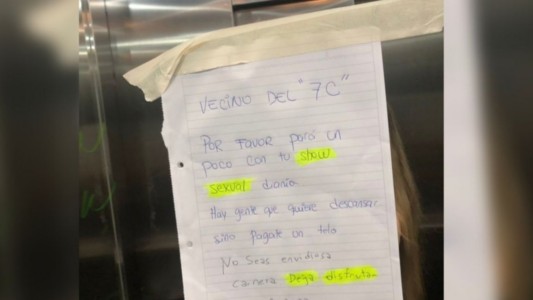 VECINO DEL "7C"
POR FAVOR pará un
poco con tu show
sexual diario.
Hay gente que quiere descansar
sino pagate un telo
No Seas envidiosa
careta Deja disfrutar